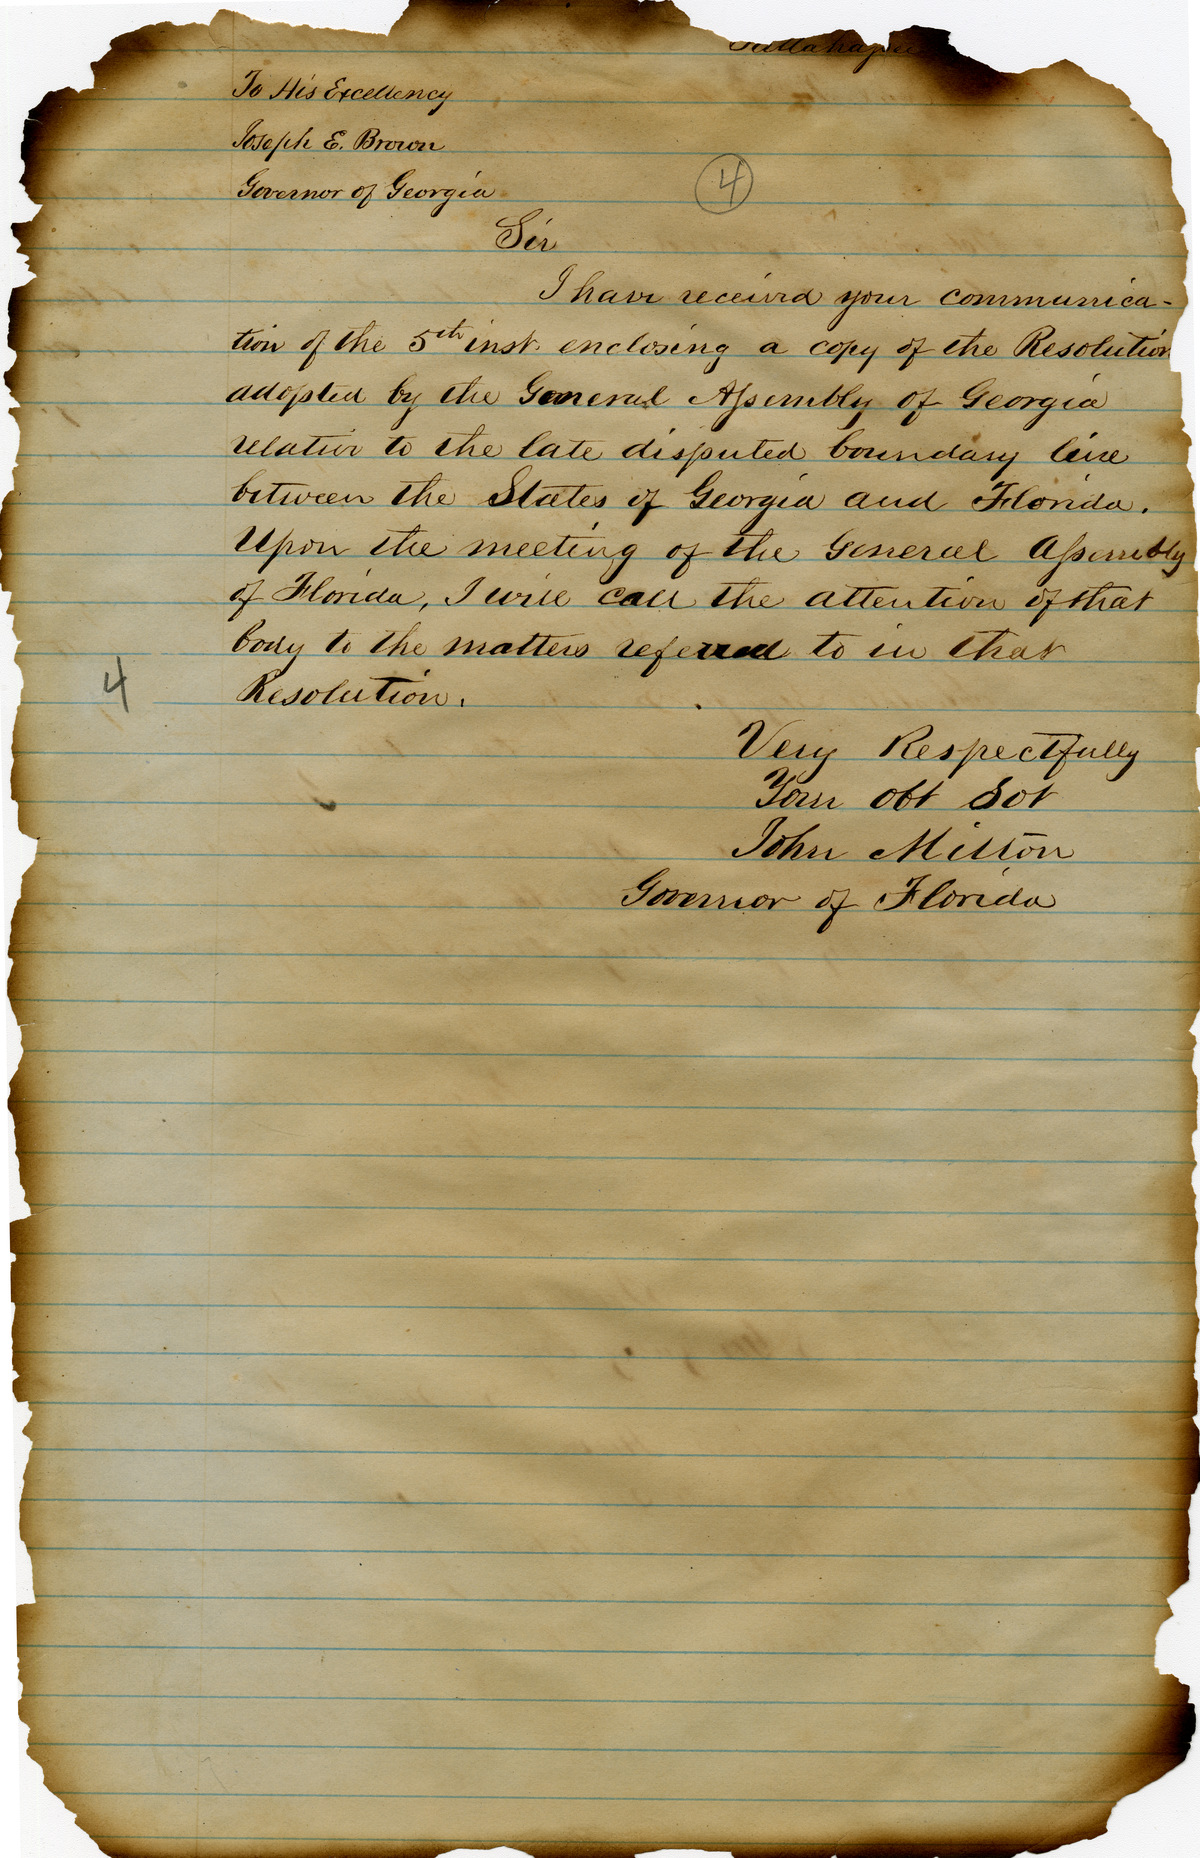 Tallahassee
To His Excellency
Joseph E. Brown
Governor of Georgia
4
Sir
I have received your communica-
tion of the 5th inst. enclosing a copy of the Resolution
adopted by the General Assembly of Georgia
relative to the late disputed boundary line
between the States of Georgia and Florida.
Upon the meeting of the General Assembly
of Florida, I will call the attention of that
body to the matters referred to in that
4
Resolution.
Very Respectfully
Your obt Svt
John Milton
Governor of Florida